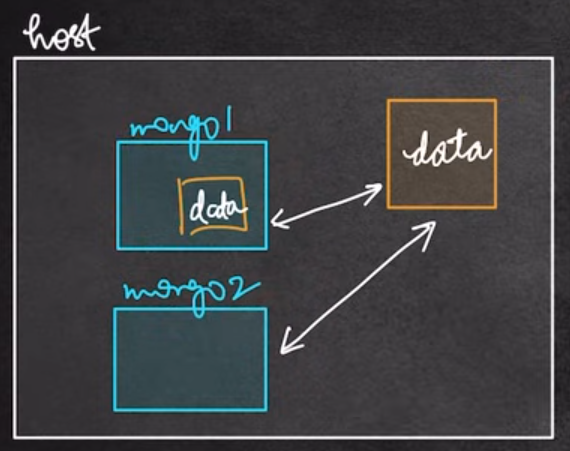 host
mongo1
data
data
mongo2